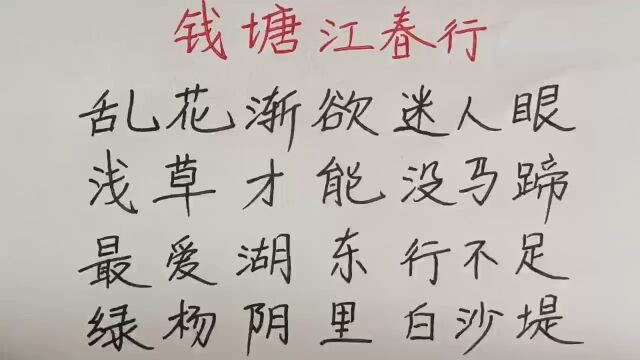 钱塘江春行
乱花渐欲迷人眼
浅草才能没马蹄
最爱湖东行不足
绿杨阴里白沙堤